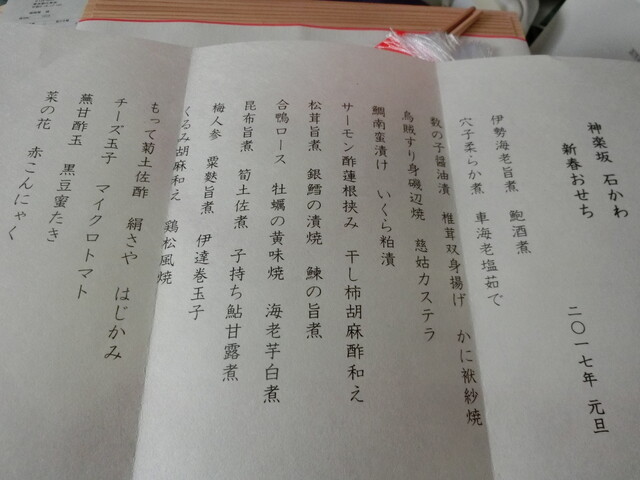 神楽坂 石かわ
新春おせち
二〇一七年 元旦
伊勢海老旨煮 鮑酒煮
穴子柔らか煮 車海老塩茹で
数の子醤油漬 椎茸双身揚げ かに袱紗焼
烏賊すり身磯辺焼 慈姑カステラ
鯛南蛮漬け いくら粕漬
サーモン酢蓮根挟み 干し柿胡麻酢和え
松茸旨煮 銀鱈の漬焼 鰊の旨煮
合鴨ロース 牡蠣の黄味焼 海老芋白煮
昆布旨煮 筍土佐煮 子持ち鮎甘露煮
梅人参 粟麩旨煮 伊達巻玉子
くるみ胡麻和え 鶏松風焼
もって菊土佐酢 絹さや はじかみ
チーズ玉子 マイクロトマト
蕪甘酢玉 黒豆蜜たき
菜の花 赤こんにゃく